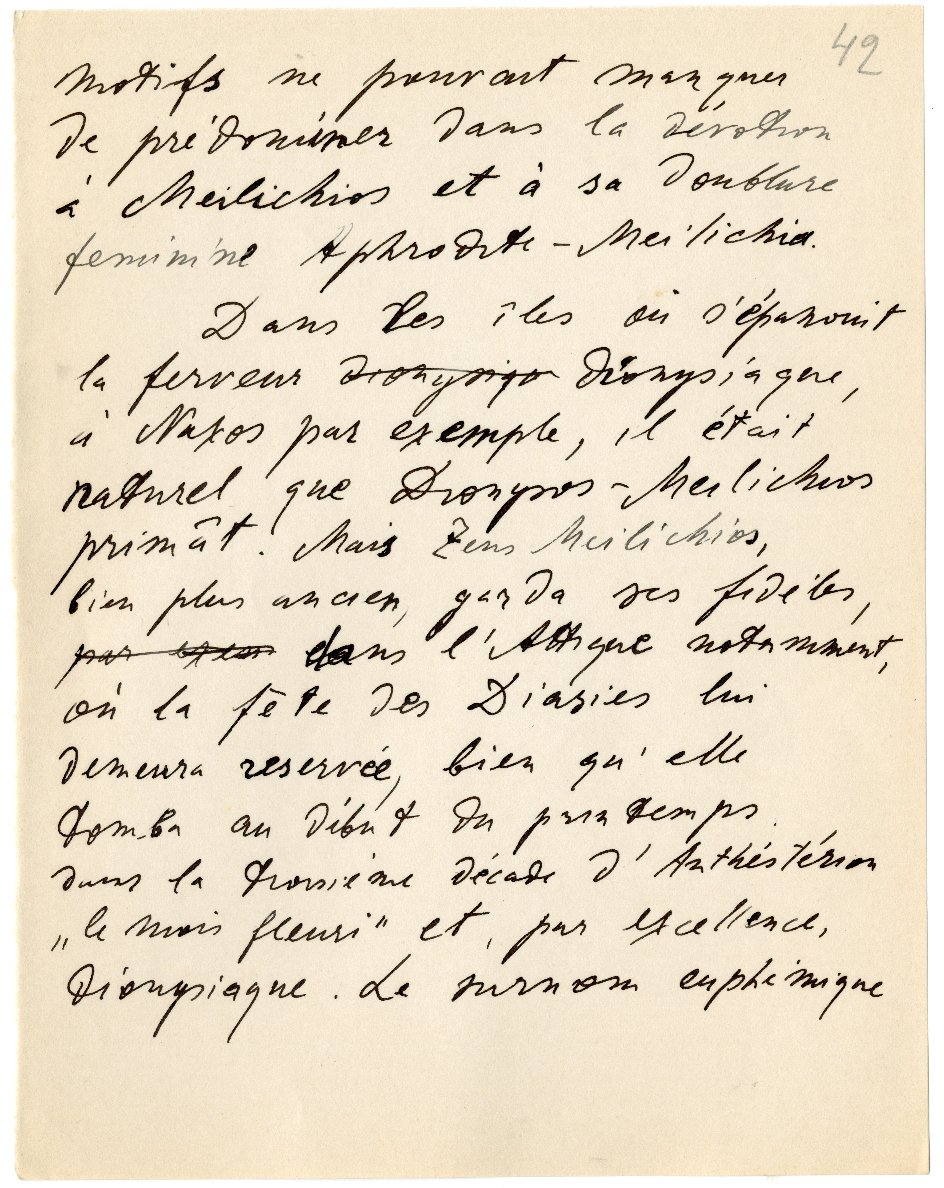 42
motifs ne pouvait manquer
de prédominer dans la dévotion
à Meilichios et à sa doublure
feminine Aphrodite-Meilichia.
Dans les îles où s'épanouit
la ferveur dionysiqu dionysiaque,
à Naxos par exemple, il était
naturel que Dionysos-Meilichios
primât. Mais Zeus Meilichios,
bien plus ancien, garda ses fidèles,
par exem dans l'Attique notamment,
où la fête des Diasies lui
demeura reservée, bien qu'elle
tomba au début du printemps
dans la troisième décade d'Anthéstérion
„le mois fleuri" et, par excellence,
dionysiaque. Le surnom euphémique